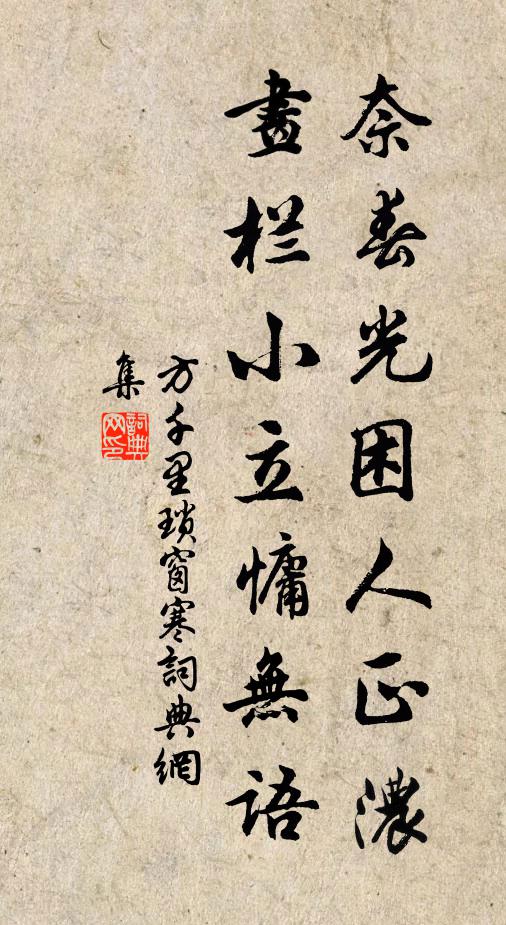 奈春光困人正濃
畫栏小立慵無語
方千里瑣窗寒詞典網
集
詞典
网印